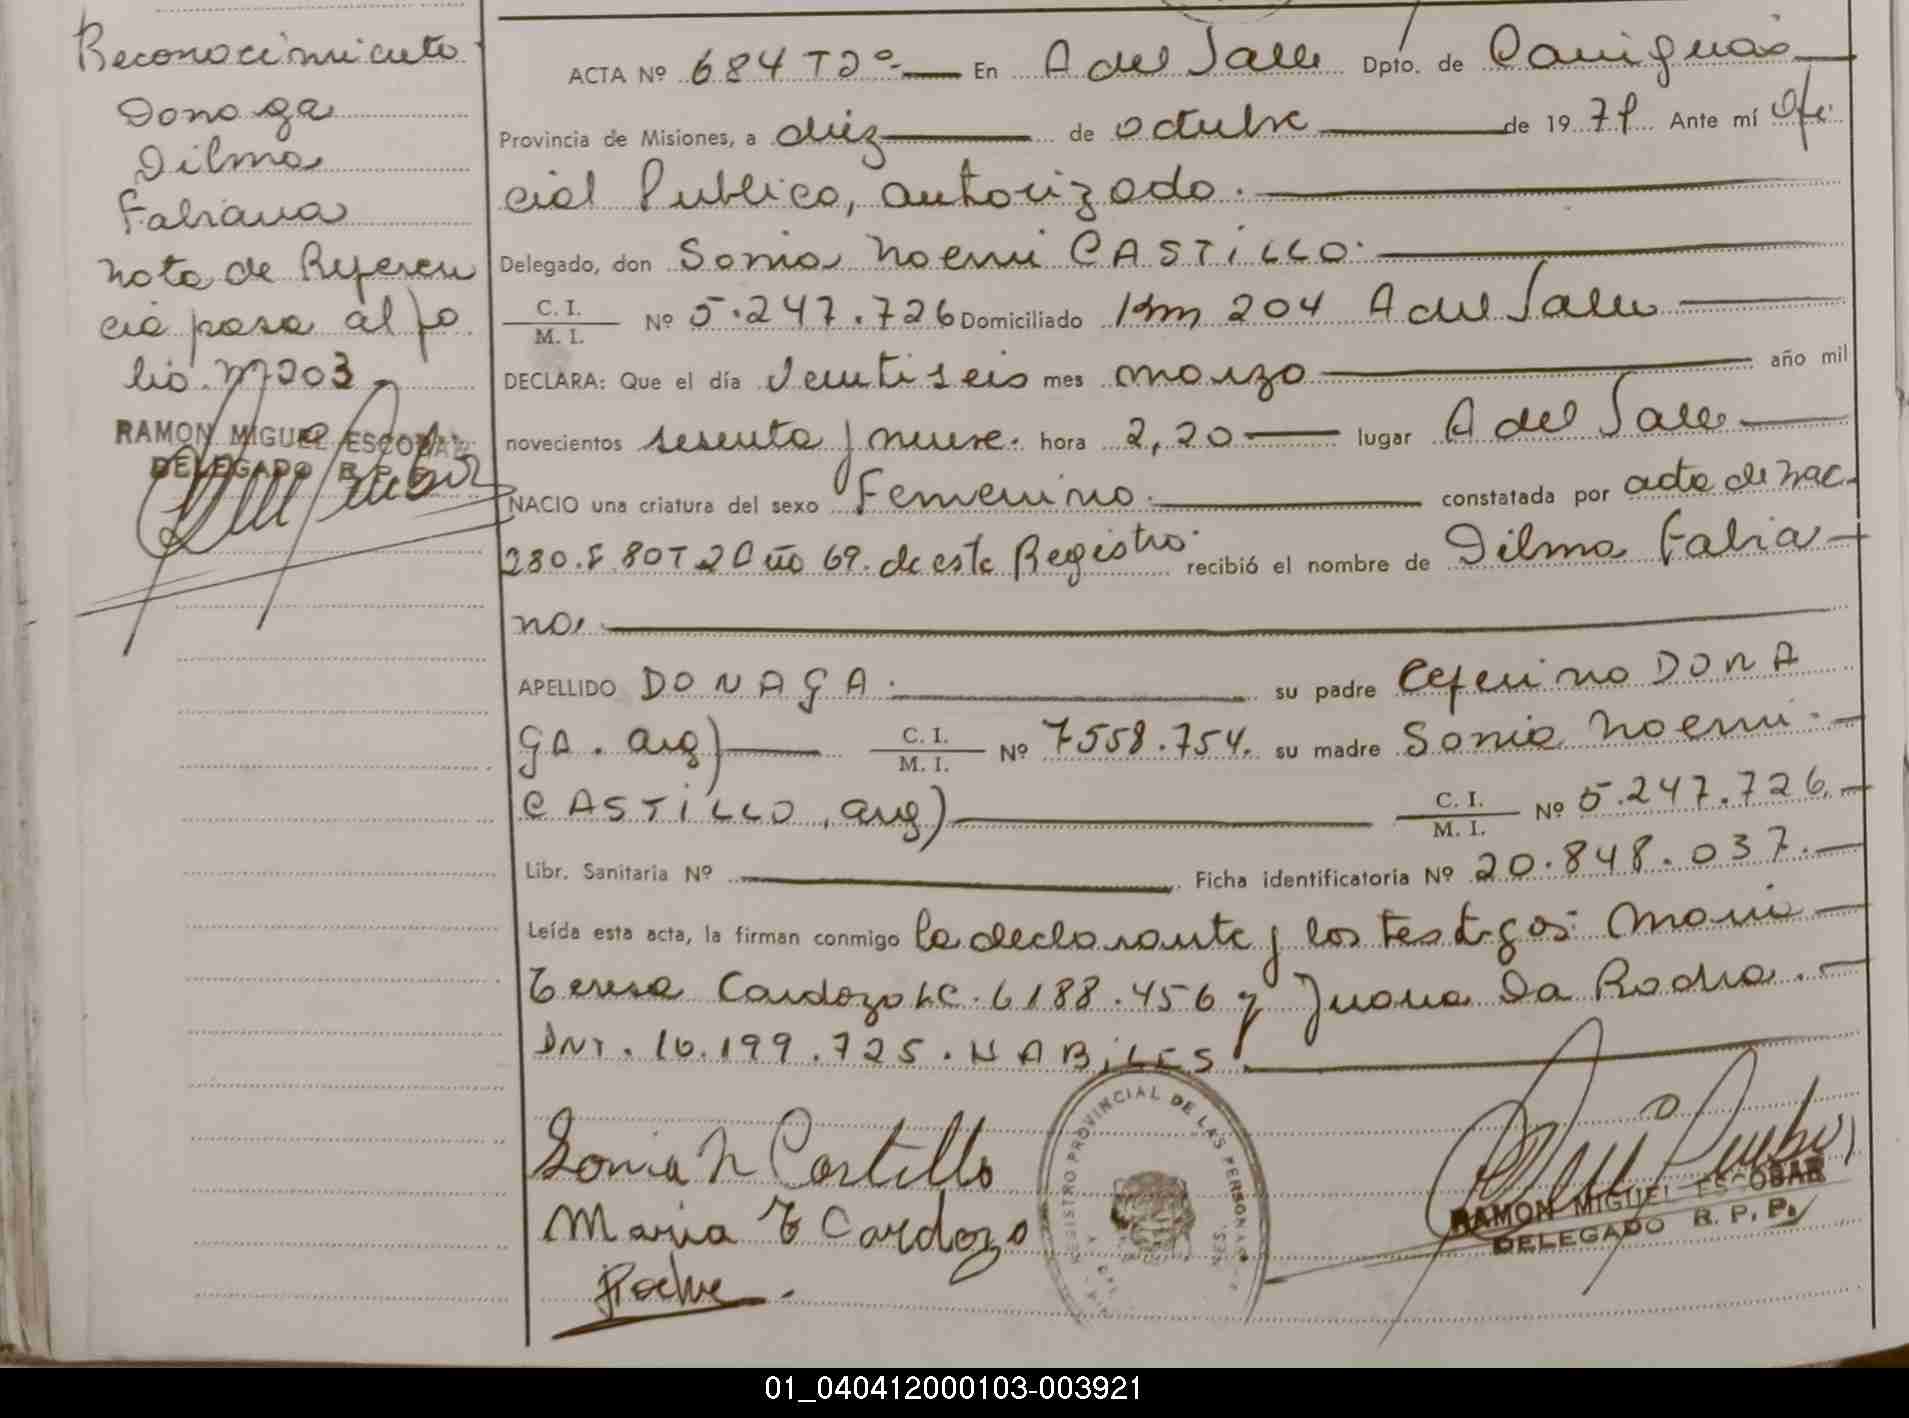 Reconocimiento
Donaga
Dilma
Fabiana
Nota de Referen
cia pasa al fo
lio. Nº 203
RAMON MIGUEL ESCOBAR
DELEGADO R. P. P.
ACTA Nº 684 T2º En A del Valle Dpto. de Cainguas
Provincia de Misiones, a diez de octubre de 197 Ante mí Ofi
cial Publico, autorizado.
Delegado, don Sonia Noemi CASTILLO.
C. I.
M. I. Nº 5.247.726 Domiciliado Km 204 A del Valle
DECLARA: Que el día Veintiseis mes marzo año mil
novecientos sesenta y nueve. hora 2,20 lugar A del Valle
NACIO una criatura del sexo Femenino. constatada por acta de nac.
230. F. 80 T 2 Año 69. de este Registro. recibió el nombre de Dilma Fabia
na.
APELLIDO DONAGA. su padre Ceferino DONA
GA. arg) C. I.
M. I. Nº 7558.754. su madre Sonia Noemi.
CASTILLO, arg) C. I.
M. I. Nº 5.247.726.
Libr. Sanitaria Nº Ficha identificatoria Nº 20.848.037.
Leída esta acta, la firman conmigo la declarante y los testigos: Maria
Teresa Cardozo LC. 6188.456 y Juana Da Rocha.
DNI. 10.199.725. HABILES.
Sonia N Castillo
Maria T Cardozo
REGISTRO PROVINCIAL DE LAS PERSONAS
RAMON MIGUEL ESCOBAR
DELEGADO R. P. P.
01_040412000103-003921